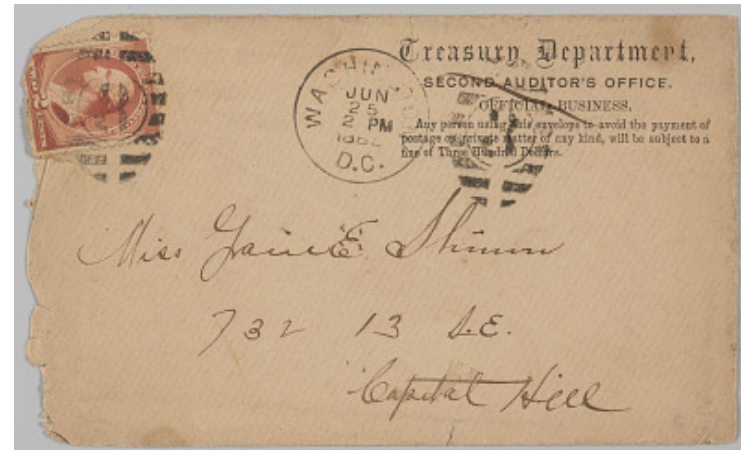 Treasury Department,
SECOND AUDITOR'S OFFICE.
OFFICIAL BUSINESS.
Any person using this envelope to avoid the payment of
postage on private matter of any kind, will be subject to a
fine of Three Hundred Dollars.
WASHINGTON
JUN
25
2 PM
D.C.
Miss E. Shimm
732 13 S.E.
Capital Hill